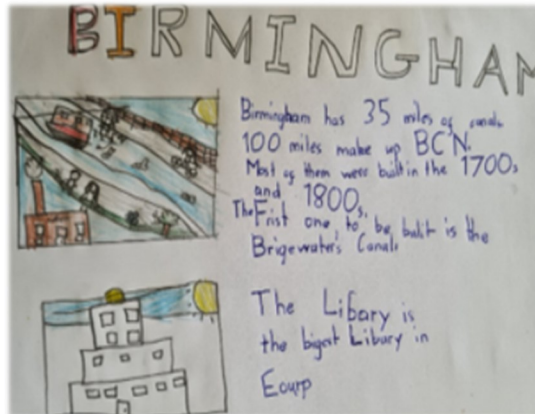 BIRMINGHAM
Birmingham has 35 miles of canals
100 miles make up BCN.
Most of them were built in the 1700s
and 1800s.
The Frist one, to be built is the
Brigewater's Canal.
The Libary is
the bigest Libary in
Eourp